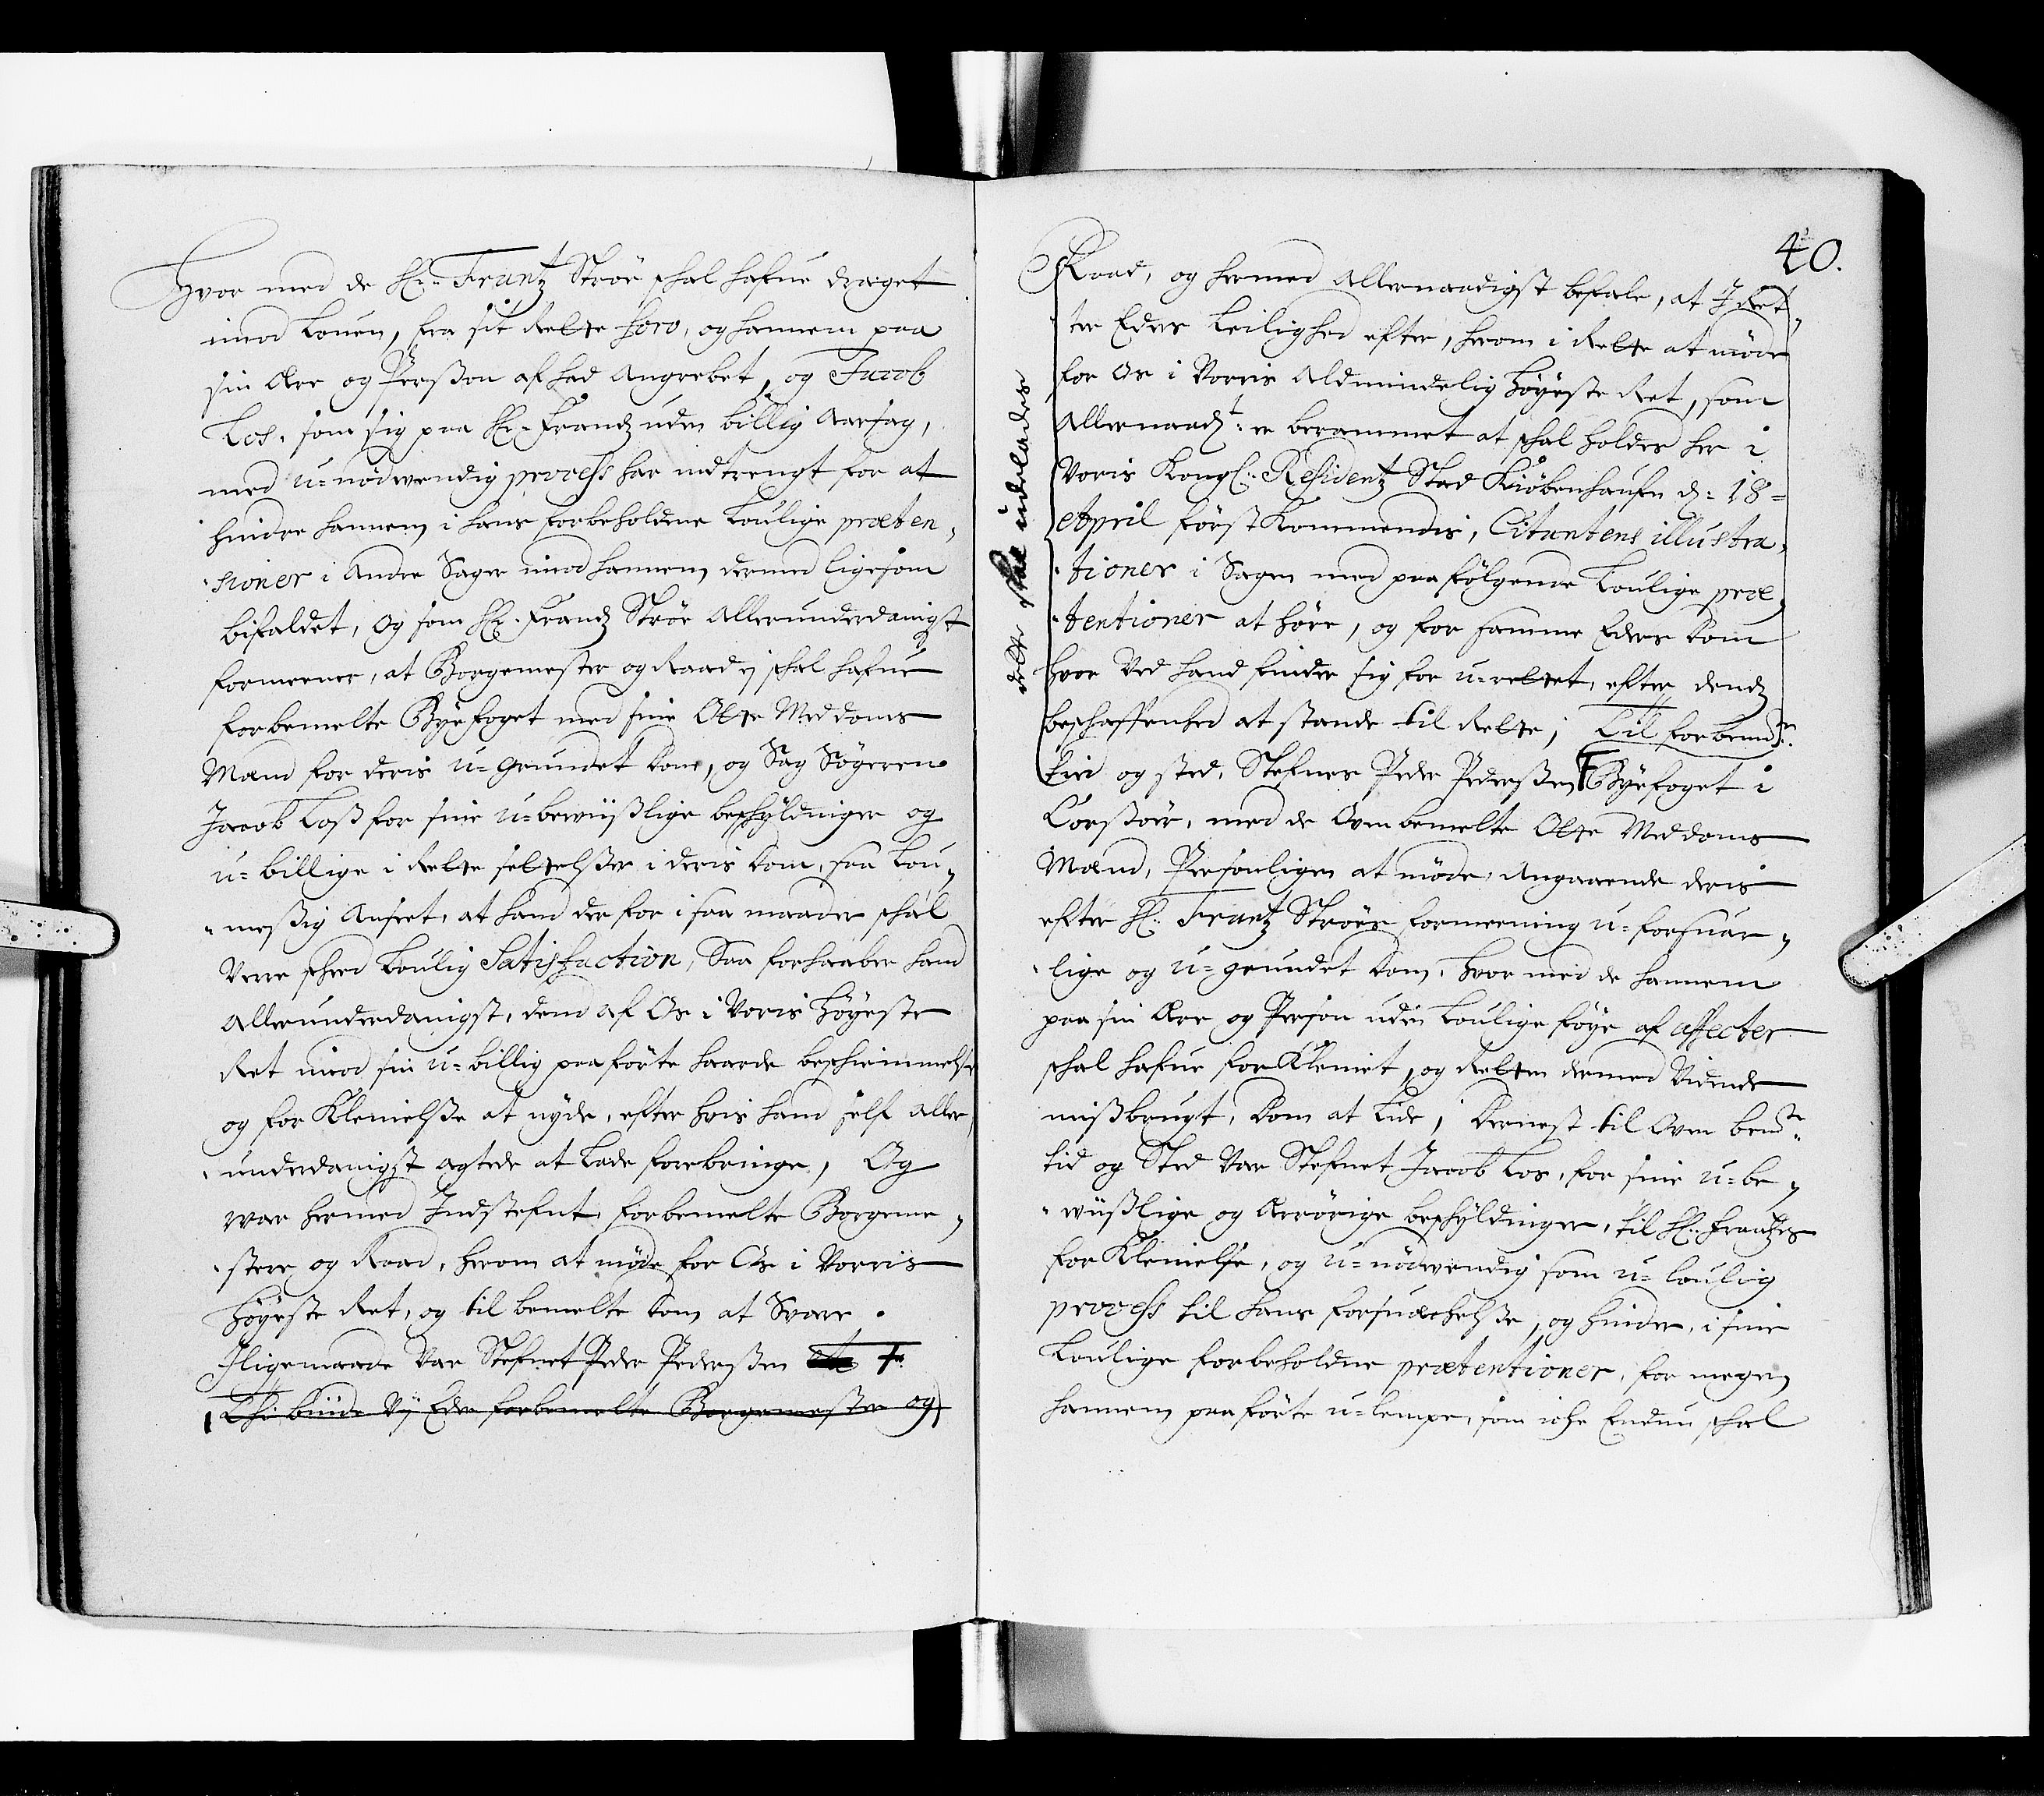 Hvor med de Hr. Frantz Ströe schal hafue draget
imod Louen, fra sit Rette foro, og hannem paa
sin Ære og Perßon af had Angrebet, og Jacob
Los, som sig paa Hr. Frandz uden billig Aarsag,
med u-nödwendig process har indtrengt for at
hindre hannem, i hans forbeholdne Loulige præten-
sioner i Andre Sager imod hannem, dermed ligesom
bifaldet, Og som Hr. Frandz Ströe Allerunderdanigst
formeener, at Borgemester og Raad ej schal hafue
forbemelte Byefoget med sine Otte Meddoms
Mænd for deris u-grundet Dom, og Sag Sögeren
Jacob Loß for sine u-bewiißlige beschyldninger og
u-billige i Rette settelßer i deris Dom, saa Lou-
meßig Anseet, at hand der for i saa maader schal
Være scheed Loulig Satisfaction, Saa forhaaber hand
Allerunderdanigst, dend af Os i Voris Höyeste
Ret imod sin u-billig paaförte haarde beschiemmelse
og for Klenielße at nyde, efter hvis hand self aller-
underdanigst agtede at Lade forebringe, Og
war hermed Indstefnt forbemelte Borgeme-
stere og Raad, herom at möde for Os i Vorris
Höyeste Ret, og til bemelte Dom at Svare.
Iligemaade Var Stefnet Peder Pederßen
Thi biude Vj Eder forbemelte Borgemester og
40.
Raad, og hermed Allernaadigst befale, at I Ret-
ter Eders Leilighed efter, herom i Rette at möde
for Os i Vorris Aldmindelig Höyeste Ret, som
Allernaadst: er berammet at schal holdes her i
Voris Kongl: Residentz Stad Kiöbenhaufn d: 18
April först Kommendis, Citantens illustra-
tioner i Sagen med paafölgende Loulige præ-
tentioner at höre, og for samme Eders Dom
hvor Ved hand finder sig for u-rettet, efter dends
beschaffenhed at stande til Rette; Til forbemte:
tid og sted, Stefnes Peder Pederßen Byefoget i
Corßöer, med de Ovenbemelte Otte Meddoms
Mænd, Personligen at möde, Angaaende deris
efter Hr: Frantz Ströes formeening u-forsuar-
lige og u-grundet Dom, hvor med de hannem
paa sin Ære og Person uden Loulige föye af affecter
schal hafue forKlenet, og Retten dermed Vidende
mißbrugt, Dom at Lide; Dernest til Oven bemte:
tid og Sted Var Stefnet Jacob Los, for sine u-be-
wiißlige og Ærrörige beschyldinger, til Hr: Frantzes
for Klenielse, og u-nödwendig som u-loulig
process til hans forsuæchelße, og hinder, i sine
Loulige forbeholdne prætentioner, for megen
hannem paaförte u-lempe, som iche Endnu schal
dette skal udelades